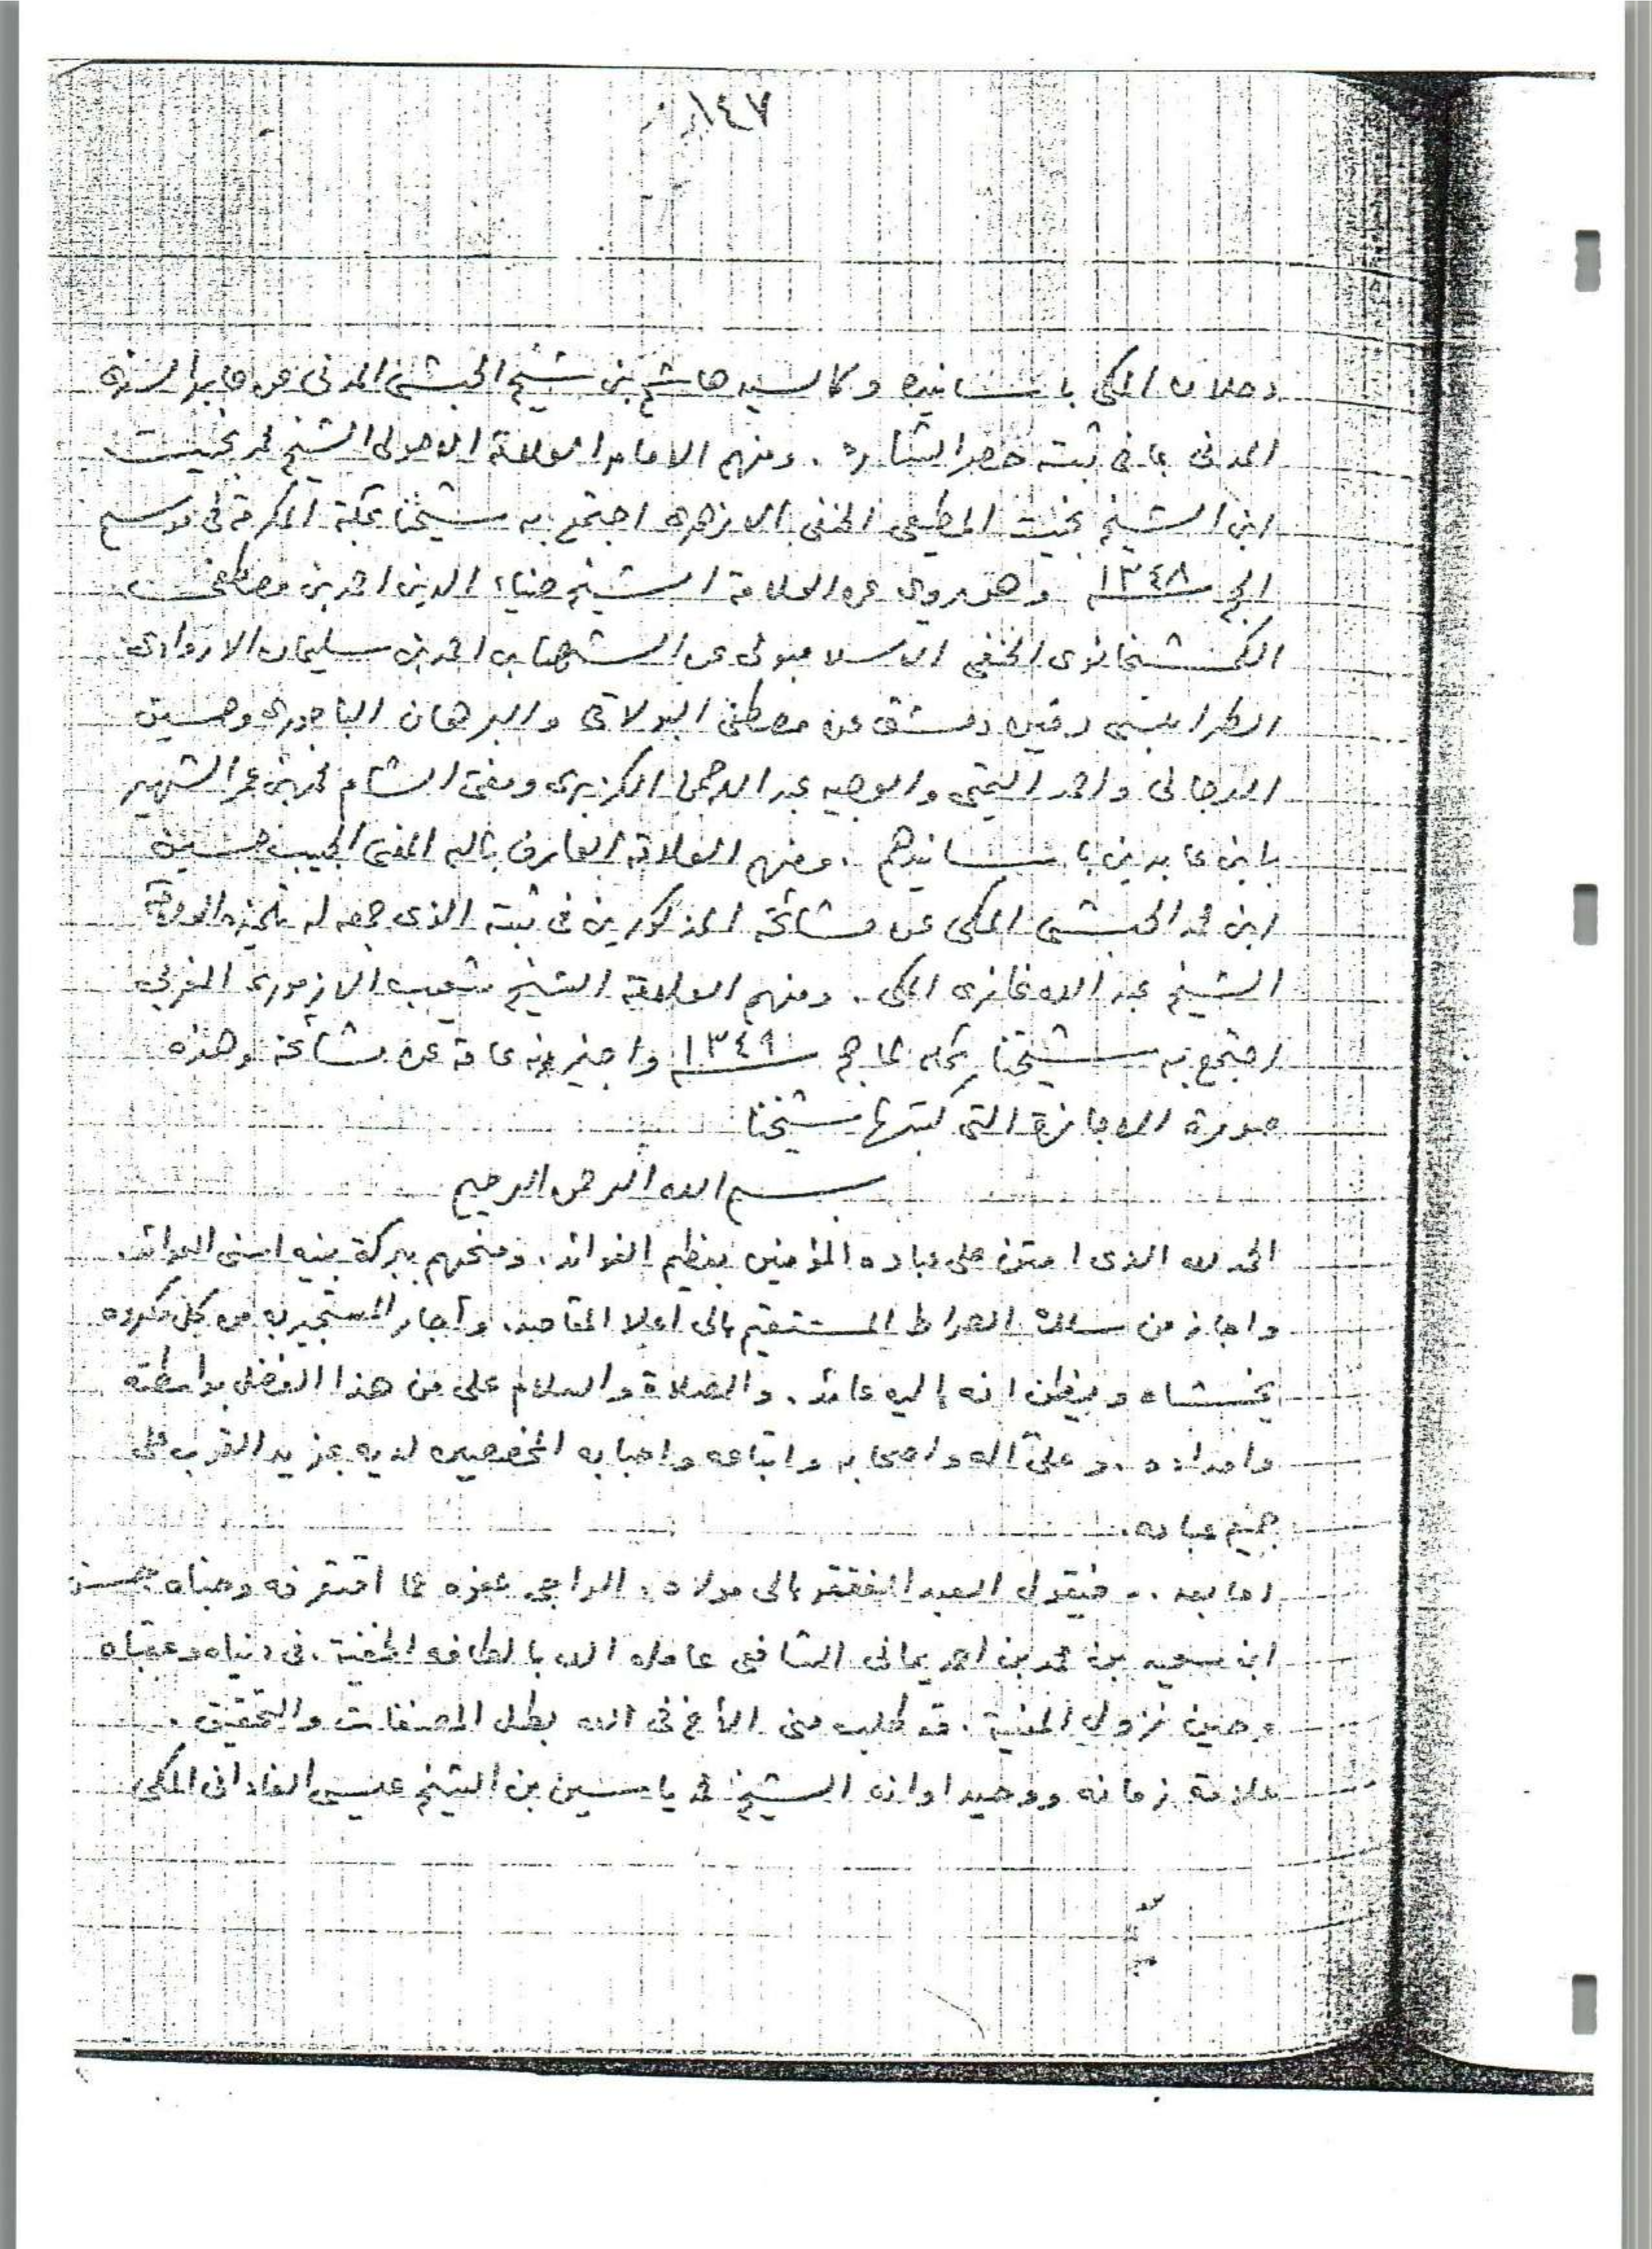 ١٤٧
دحلان المكي باسانيده وكالسيد هاشم بن شيخ الحبشي المدني عن عابد السندي
المدني بما في ثبته حصر الشارد . ومنهم الامام العلامة الاصولي الشيخ محمد بخيت
ابن الشيخ بخيت المطيعي الحنفي الازهري اجتمع به شيخنا بمكة المكرمة في موسم
الحج ١٣٤٨ وهو يروي عن العلامة الشيخ ضياء الدين احمد بن مصطفى
الكمشخانوي الحنفي الاسلامبولي عن الشهاب احمد بن سليمان الاروادي
الطرابلسي دفين دمشق عن مصطفى البولاقي والبرهان الباجوري وحسين
الدجاني واحمد التميمي والوجيه عبد الرحمن الكزبري ومفتي الشام محمد بن عمر الشهير
بابن عابدين باسانيدهم . ومنهم العلامة العارف بالله المفتي الحبيب حسين
ابن محمد الحبشي المكي عن مشائخه المذكورين في ثبته الذي جمعه له تلميذه العلامة
الشيخ عبد الله غازي المكي . ومنهم العلامة الشيخ شعيب الازموري المغربي
اجتمع به شيخنا بمكة عام ١٣٤٩ واجيز منه عامة عن مشائخه وهذه
صورة الاجازة التي كتبها شيخنا
بسم الله الرحمن الرحيم
الحمد لله الذي امتن على عباده المؤمنين بعظيم الفوائد . ومنحهم ببركة نبيه اسنى العوائد.
واجاز من سلك الصراط المستقيم الى اعلا المقاصد. وأجار المستجير به من كل مكروه
يخشاه ويظن انه اليه عائد . والصلاة والسلام على من هذا الفضل بواسطته
وامداده . وعلى آله واصحابه واتباعه واحبابه المخصصين لديه بمزيد القرب على
جميع عباده .
اما بعد .. فيقول العبد المفتقر الى مولاه ، الراجي عفوه عما اقترفه وجناه حسن
ابن سعيد بن محمد بن احمد يماني الشافعي عامله الله بالطافه الخفية . في دنياه وعقباه
وحين نزول المنية . قد طلب مني الأخ في الله بطل المصنفات والتحقيق .
علامة زمانه ووحيد اوانه الشيخ محمد ياسين بن الشيخ عيسى الفاداني المكي